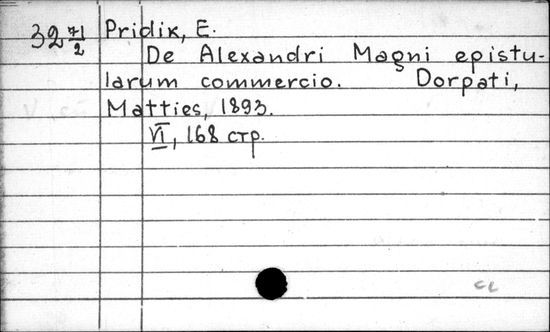 32 71/2 Pridik, E.
De Alexandri Magni epistu-
larum commercio. Dorpati,
Matties, 1893.
VI, 168 стр.